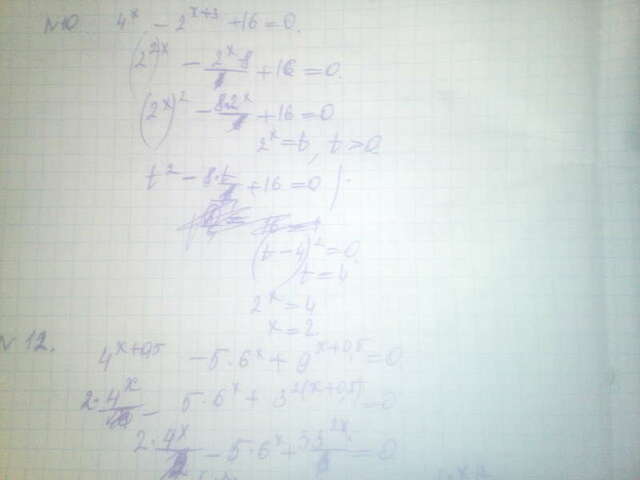 №10. 4^x - 2^{x+3} + 16 = 0.
(2^2)^x - 2^x·8 + 16 = 0.
(2^x)^2 - 8·2^x + 16 = 0
2^x = t, t > 0
t^2 - 8·t + 16 = 0
(t - 4)^2 = 0
t = 4
2^x = 4
x = 2
№12. 4^{x+0,5} - 5·6^x + 9^{x+0,5} = 0
2·4^x - 5·6^x + 3^{2(x+0,5)} = 0
2·4^x - 5·6^x + 3·3^{2x} = 0